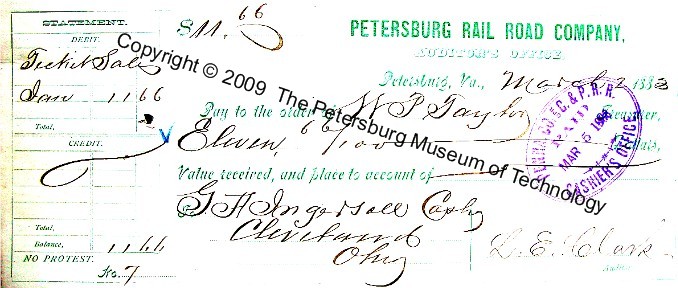 STATEMENT.
DEBIT.
Ticket Sales
Jan 11 66
Total,
CREDIT.
Total,
Balance, 11 66
NO PROTEST.
No. 7
$11.66
PETERSBURG RAIL ROAD COMPANY,
AUDITOR'S OFFICE,
Petersburg, Va., March 2 1883
Pay to the order of W P Taylor Treasurer,
Eleven 66/100 Dollars,
Value received, and place to account of
G H Ingersoll Cash
Cleveland
Ohio
L. E. Clark
Auditor
MAR 5
CASHIER'S OFFICE
Copyright © 2009 The Petersburg Museum of Technology